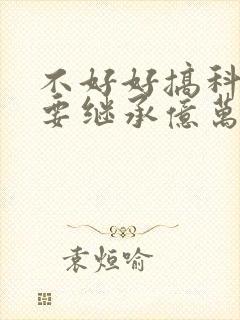 不好好搞科
要继承億萬
袁烜喻